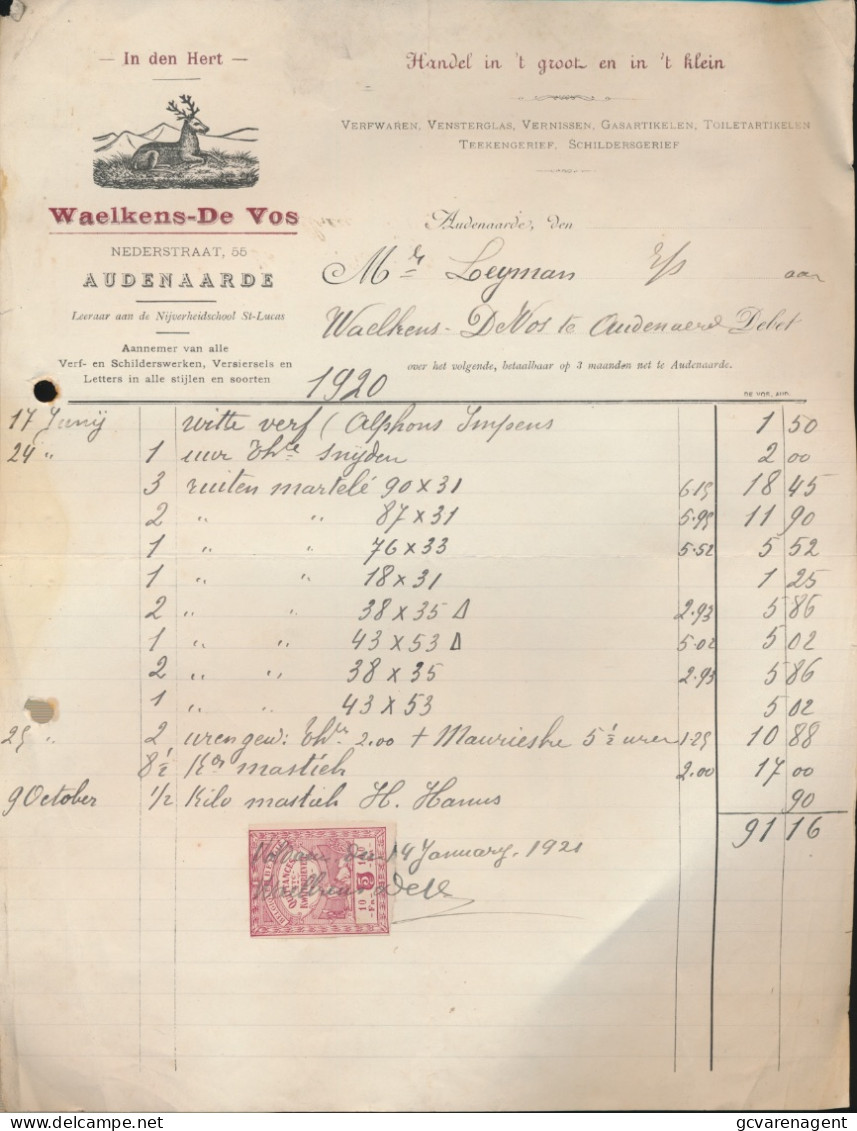 — In den Hert —
Handel in 't groot en in 't klein
Verfwaren, Vensterglas, Vernissen, Gasartikelen, Toiletartikelen
Teekengerief, Schildersgerief
Waelkens-De Vos
NEDERSTRAAT, 55
AUDENAARDE
Leeraar aan de Nijverheidschool St-Lucas
Aannemer van alle
Verf- en Schilderswerken, Versiersels en
Letters in alle stijlen en soorten
Audenaarde, den
Mr Leyman aan
Waelkens-DeVos te Audenaerd Debet
over het volgende, betaalbaar op 3 maanden net te Audenaarde.
1920
DE VOS, AUD.
17 Junij witte verf (Alphons Impens 1 50
24 " 1 uur snijden 2 00
3 ruiten martelé 90 x 31 6.15 18 45
2 " " 87 x 31 5.95 11 90
1 " " 76 x 33 5.52 5 52
1 " " 18 x 31 1 25
2 " " 38 x 35 Δ 2.93 5 86
1 " " 43 x 53 Δ 5.02 5 02
2 " " 38 x 35 2.93 5 86
1 " " 43 x 53 5 02
25 " 2 uren gew: 2.00 + Maurieske 5 ½ uren 1.25 10 88
8½ Kos mastich 2.00 17 00
9 October ½ Kilo mastich H. Hanus 90
91 16
Voldaan den 14 January 1921
Waelkens DeV
5
10
© delcampe.net
gcvarenagent